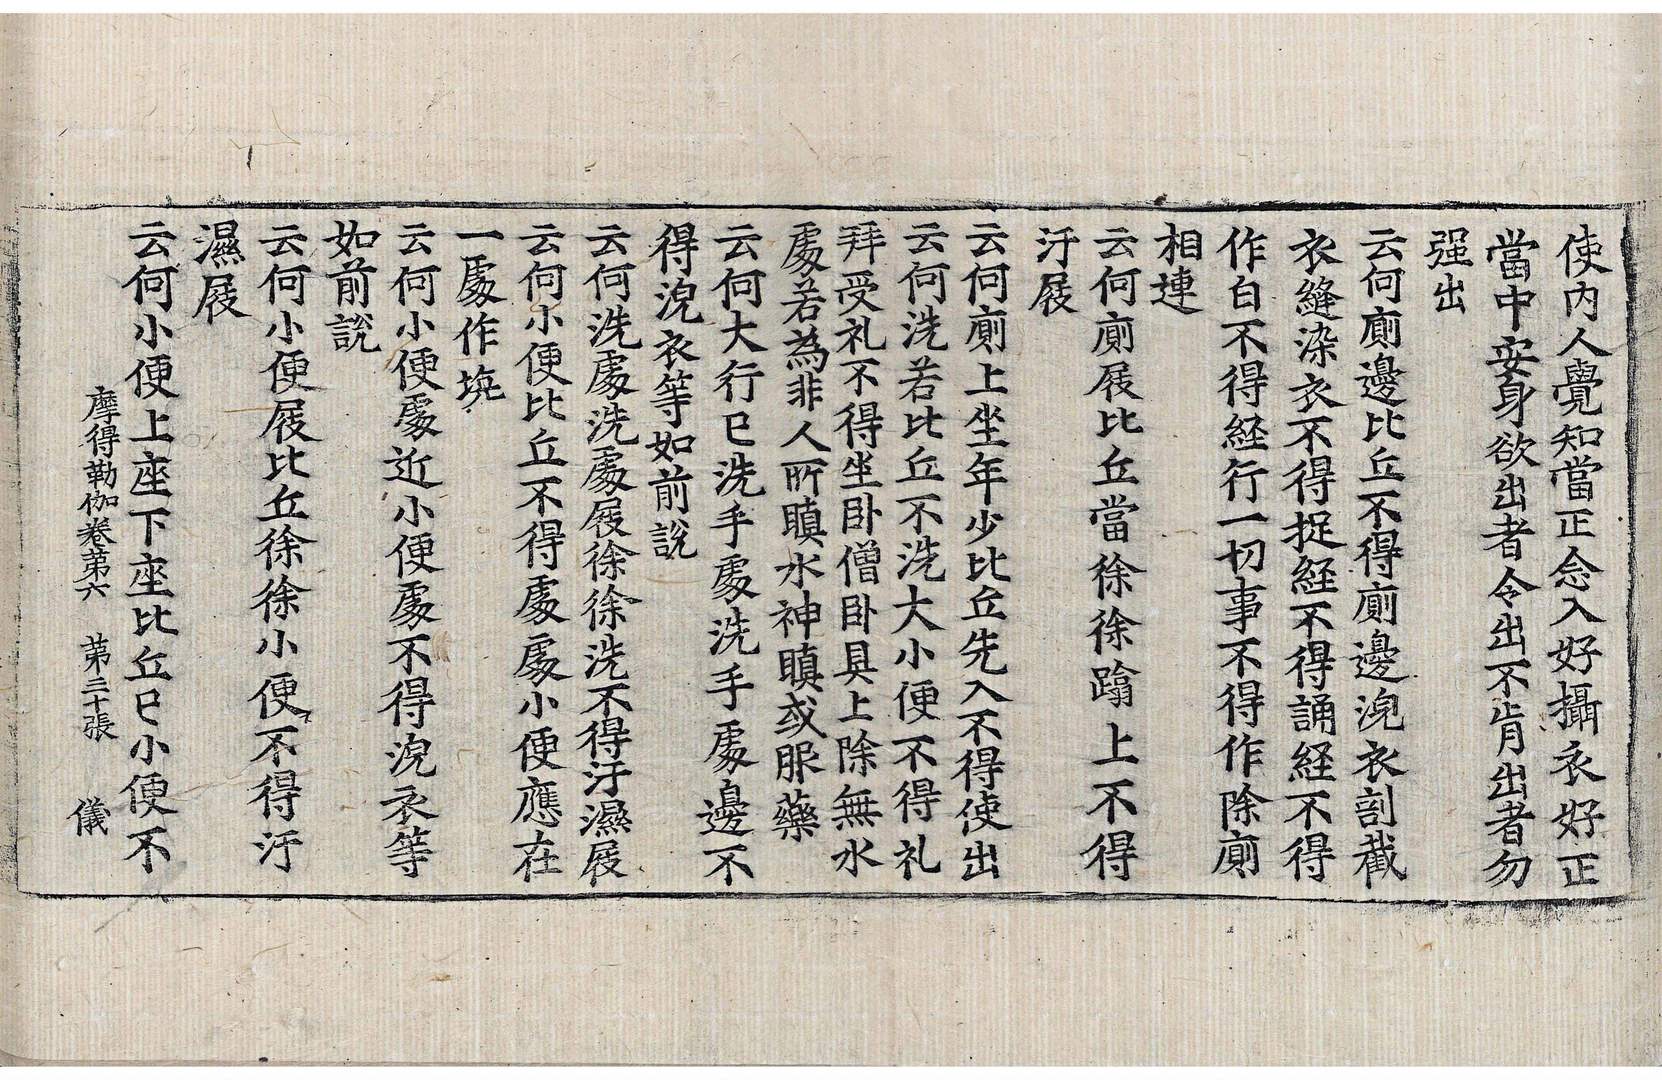 使内人覺知當正念入好攝衣好正
當中安身欲出者令出不肯出者勿
强出
云何廁邊比丘不得廁邊浣衣割截
衣縫染衣不得捉経不得誦経不得
作白不得経行一切事不得作除廁
相連
云何廁屐比丘當徐徐蹹上不得
汙屐
云何廁上坐年少比丘先入不得使出
云何洗若比丘不洗大小便不得礼
拜受礼不得坐卧僧卧具上除無水
處若為非人所瞋水神瞋或服藥
云何大行已洗手處洗手處邊不
得浣衣等如前說
云何洗處洗處屐徐徐洗不得汙濕屐
云何小便比丘不得處處小便應在
一處作埦
云何小便處近小便處不得浣衣等
如前說
云何小便屐比丘徐徐小便不得汙
濕屐
云何小便上座下座比丘已小便不
摩得勒伽卷第六 第二十張 儀